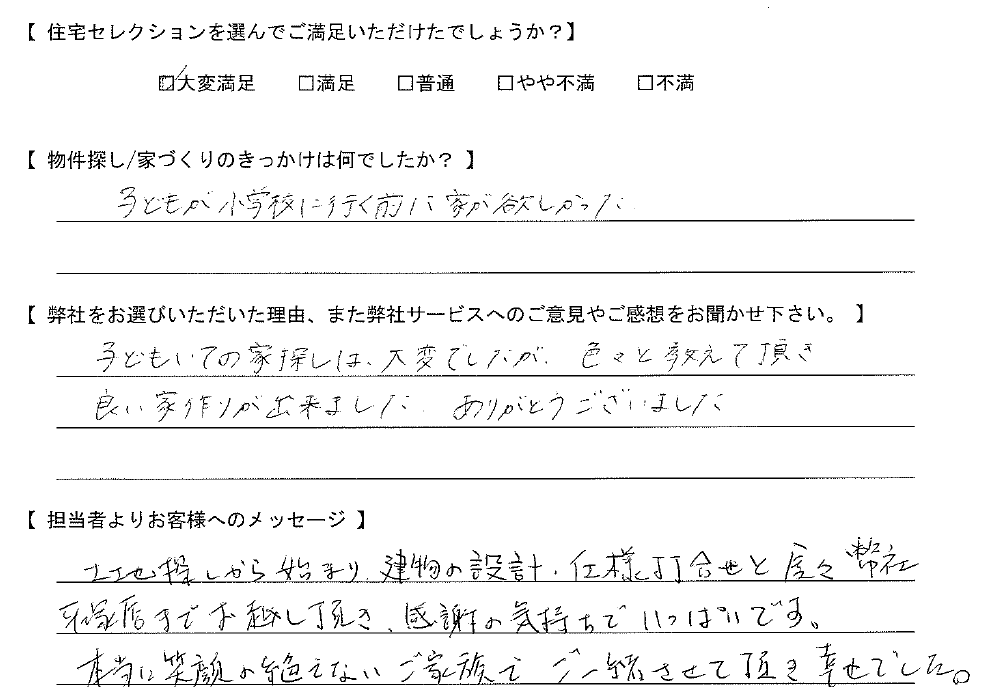 【 住宅セレクションを選んでご満足いただけたでしょうか？】
☑大変満足 □満足 □普通 □やや不満 □不満
【 物件探し/家づくりのきっかけは何でしたか？ 】
子どもが小学校に行く前に家が欲しかった
【 弊社をお選びいただいた理由、また弊社サービスへのご意見やご感想をお聞かせ下さい。 】
子どもいての家探しは、大変でしたが、色々と教えて頂き
良い家作りが出来ました。ありがとうございました
【 担当者よりお客様へのメッセージ 】
土地探しから始まり、建物の設計、仕様打合せと度々弊社
平塚店までお越し頂き、感謝の気持ちでいっぱいです。
本当に笑顔の絶えないご家族で ご一緒させて頂き幸せでした。